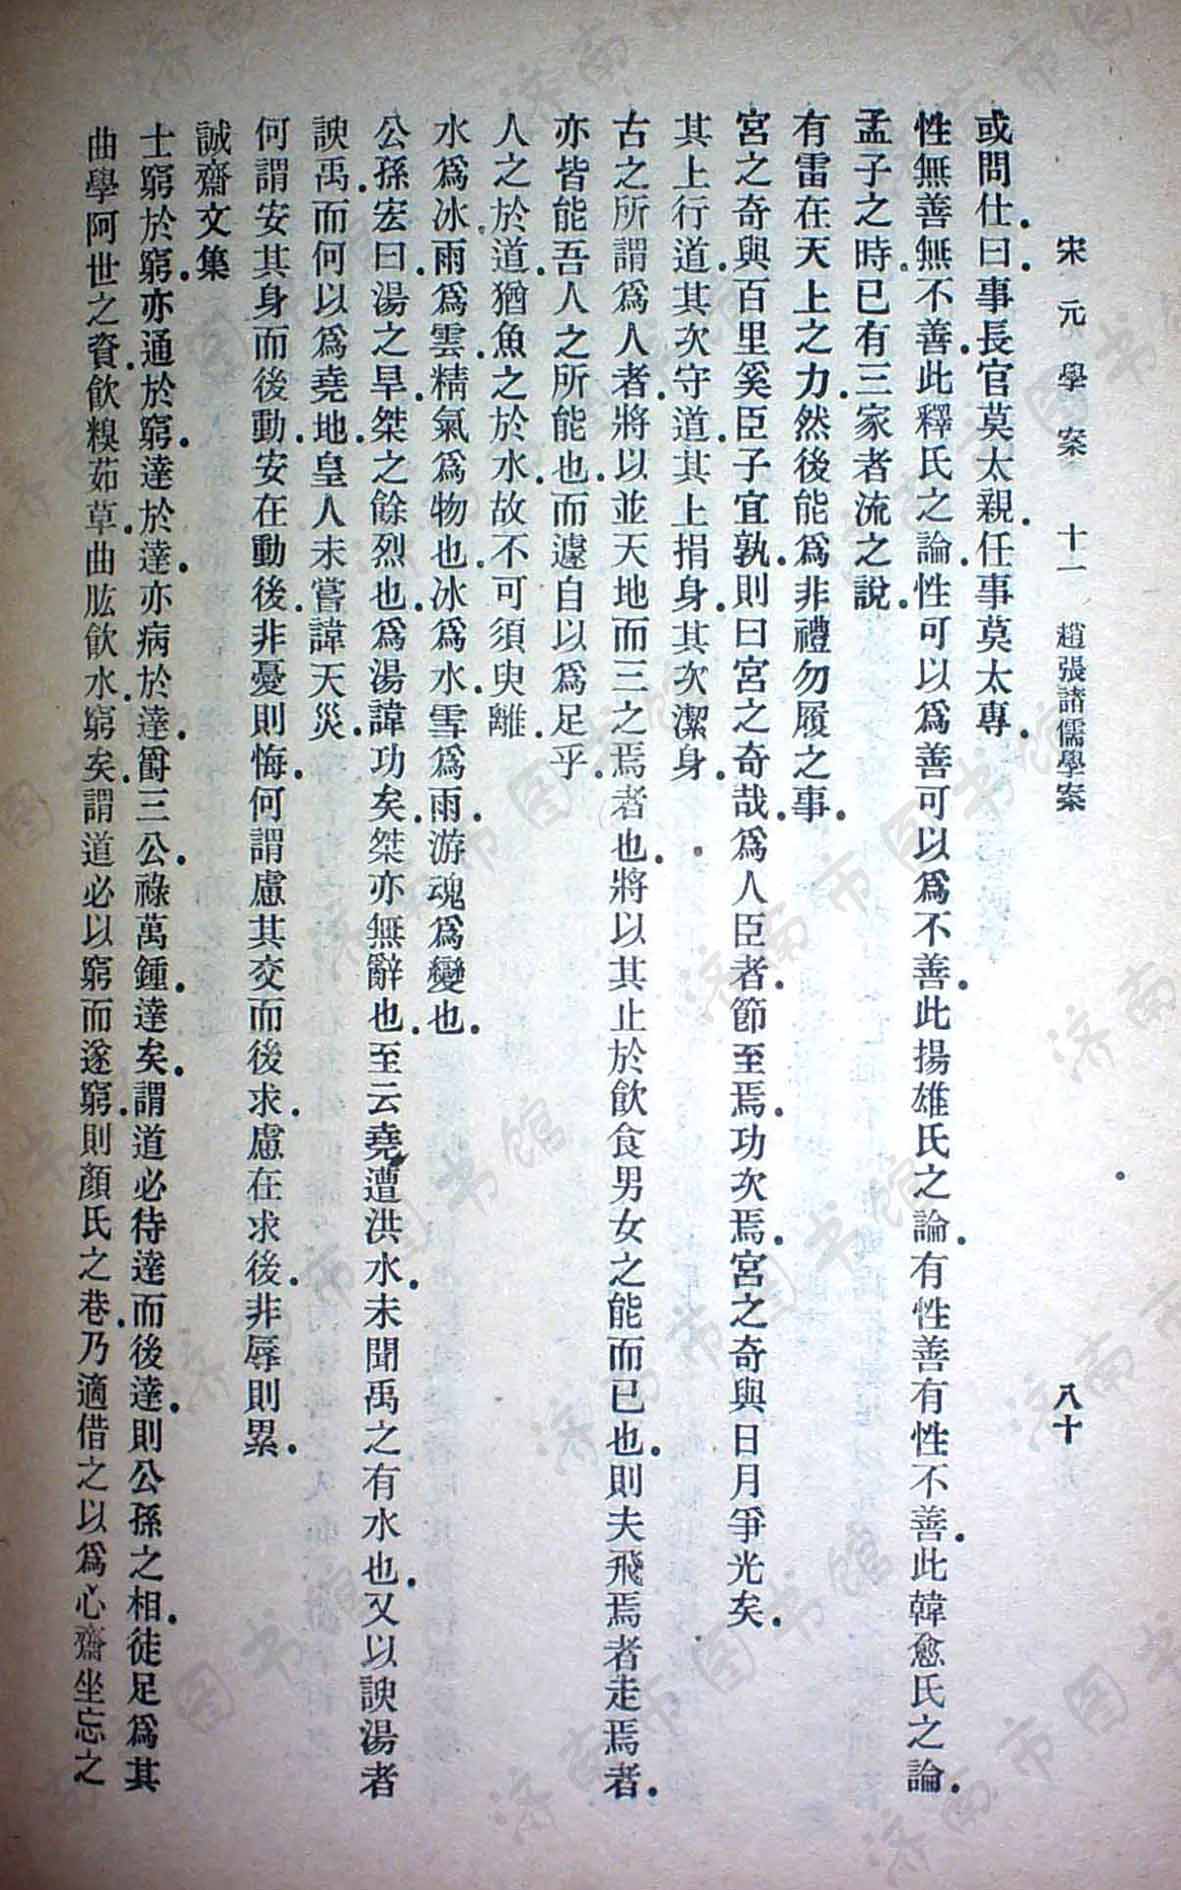 宋元學案 十一 趙張諸儒學案 八十
或問仕.曰.事長官莫太親.任事莫太專.
性無善無不善.此釋氏之論.性可以爲善可以爲不善.此揚雄氏之論.有性善有性不善.此韓愈氏之論.
孟子之時.已有三家者流之說.
有雷在天上之力.然後能爲非禮勿履之事.
宮之奇與百里奚臣子宜孰.則曰宮之奇哉.爲人臣者.節至焉.功次焉.宮之奇與日月爭光矣.
其上行道.其次守道.其上捐身.其次潔身.
古之所謂爲人者.將以並天地而三之焉者也.將以其止於飮食男女之能而已也.則夫飛焉者走焉者.
亦皆能吾人之所能也.而遽自以爲足乎.
人之於道.猶魚之於水.故不可須臾離.
水爲冰.雨爲雲.精氣爲物也.冰爲水.雪爲雨.游魂爲變也.
公孫宏曰.湯之旱.桀之餘烈也.爲湯諱功矣.桀亦無辭也.至云堯遭洪水.未聞禹之有水也.又以諛湯者
諛禹.而何以爲堯地.皇人未嘗諱天災.
何謂安其身而後動.安在動後.非憂則悔.何謂慮其交而後求.慮在求後.非辱則累.
誠齋文集
士窮於窮.亦通於窮.達於達.亦病於達.爵三公.祿萬鍾.達矣.謂道必待達而後達.則公孫之相.徒足爲其
曲學阿世之資.飮糗茹草.曲肱飮水.窮矣.謂道必以窮而遂窮.則顏氏之巷.乃適借之以爲心齋坐忘之